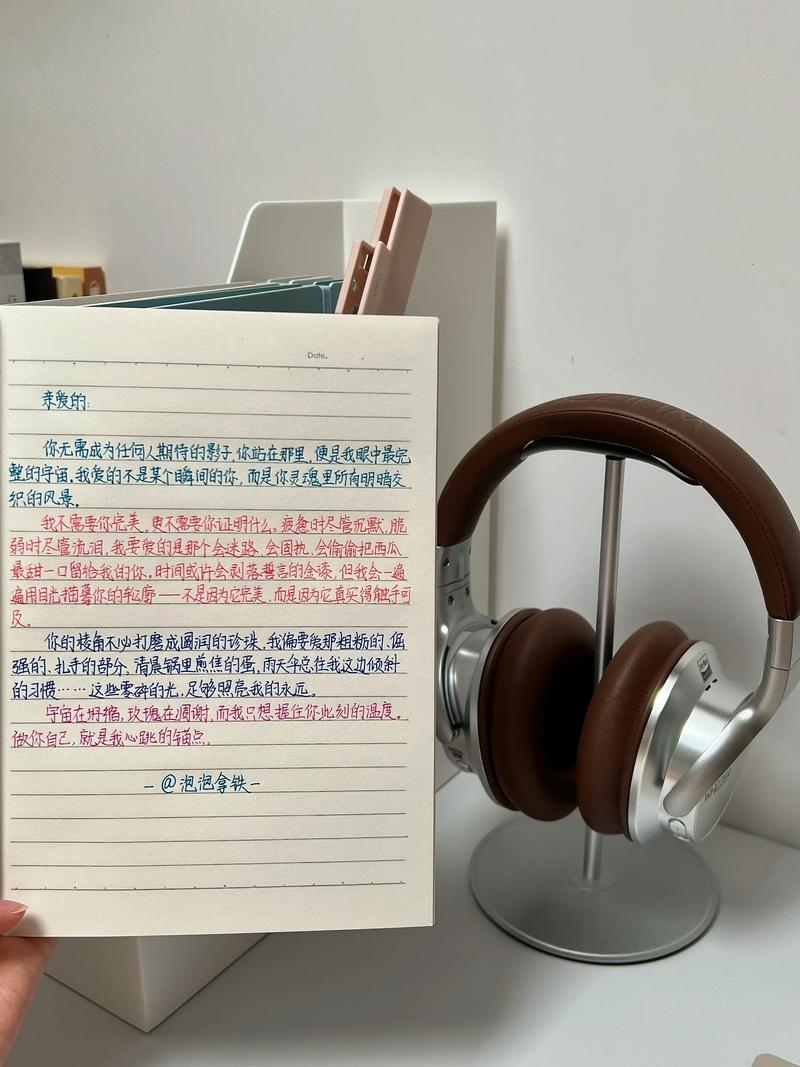 Date.
亲爱的:
你无需成为任何人期待的影子,你站在那里,便是我眼中最完
整的宇宙,我爱的不是某个瞬间的你,而是你灵魂里所有明暗交
织的风景。
我不需要你完美,更不需要你证明什么。疲惫时尽管沉默,脆
弱时尽管流泪,我要爱的是那个会迷路、会固执、会偷偷把西瓜
最甜一口留给我的你。时间或许会剥落誓言的金漆,但我会一遍
遍用目光描摹你的轮廓——不是因为它完美,而是因为它真实得触手可
及。
你的棱角不必打磨成圆润的珍珠,我偏要爱那粗粝的、倔
强的、扎手的部分,清晨锅里煎焦的蛋,雨天伞总往我这边倾斜
的习惯……这些零碎的光,足够照亮我的永远。
宇宙在坍缩,玫瑰在凋谢,而我只想握住你此刻的温度。
做你自己,就是我心跳的锚点。
-@泡泡拿铁-